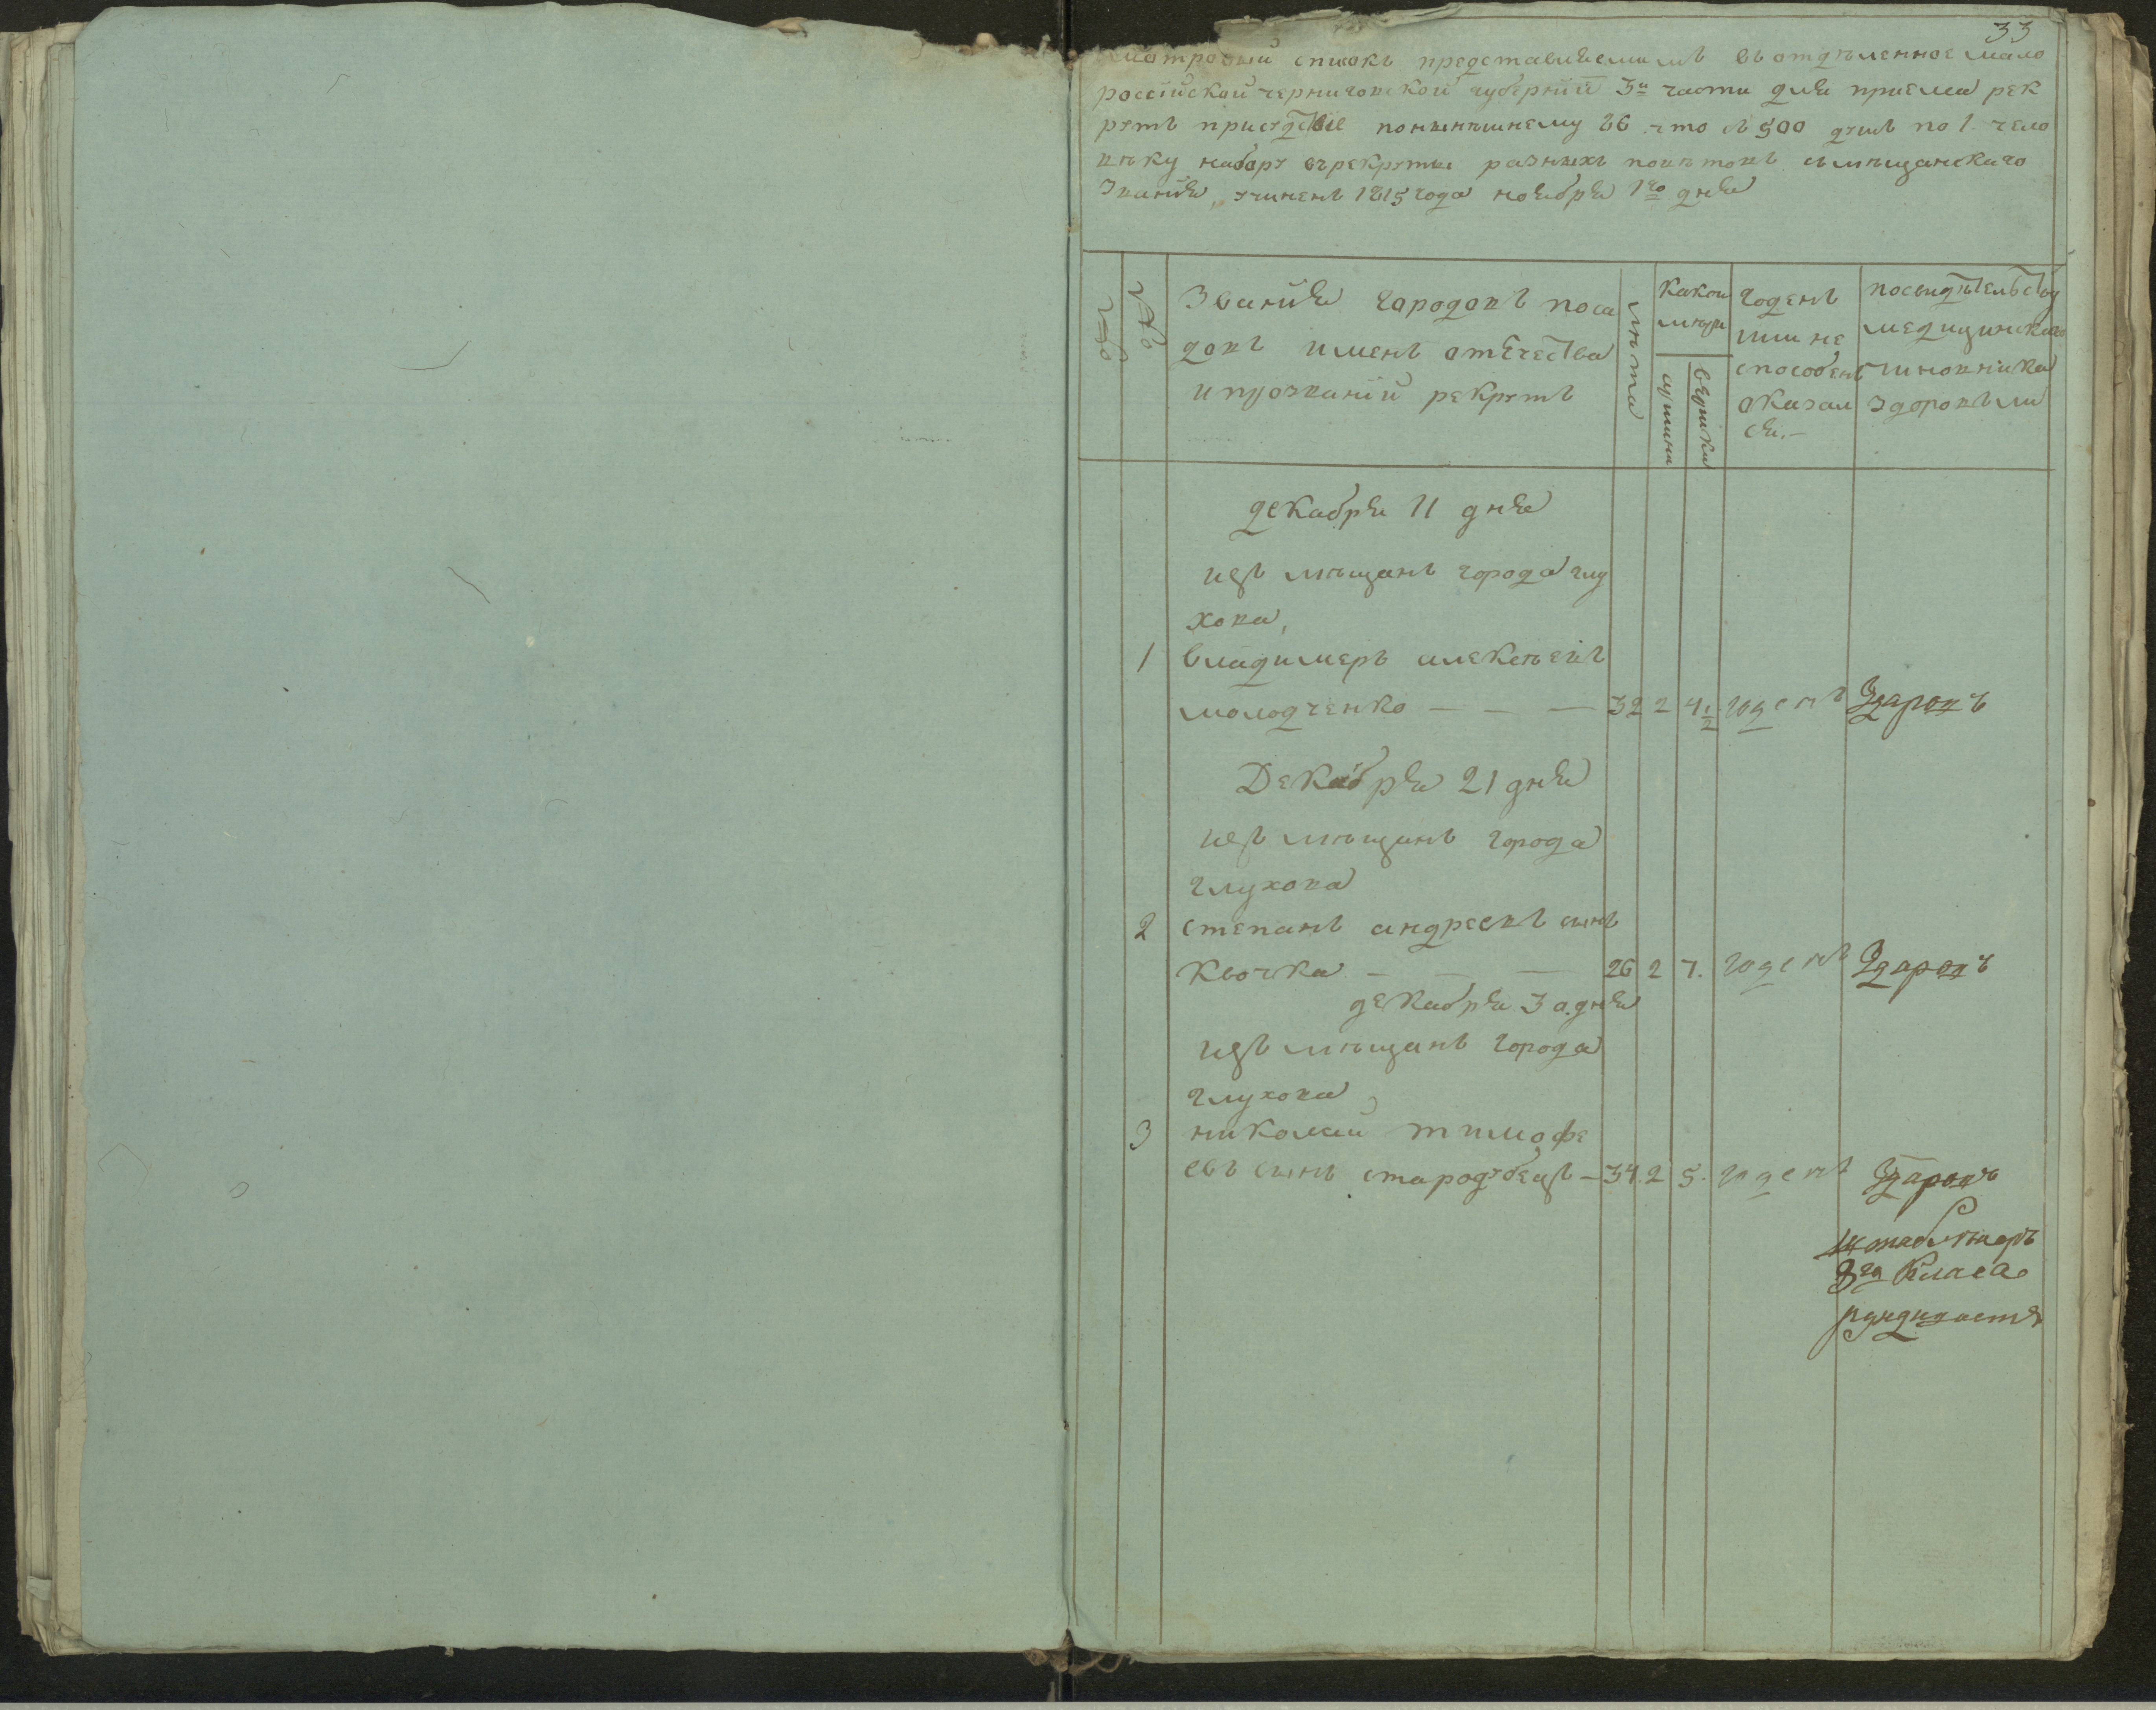 33
смотровый списокъ представляемымъ въ отдѣленное мало
россійской черниговской губерніи 3й части для приема рек
рутъ присудствіе понынѣшнему 86 что съ 500 душъ по 1 чело
вѣку набору въ рекруты разныхъ повѣтовъ съ мѣщанскаго
званія, учиненъ 1815 года ноября 1го дня
№ №
Званія городовъ поса
довъ именъ отечества
и прозваній рекрутъ
лѣта
какой
мѣры
аршины
вершки
годенъ
или не
способенъ
оказал
ся.—
по свидѣтельству
медицинскаго
чиновника
здоровъ ли
декабря 11 дня
изъ мѣщанъ города глу
хова,
1 владимеръ алексѣевъ
молодченко — — — 32 2 4 1/2 годенъ Здаровъ
Декабря 21 дня
изъ мѣщанъ города
глухова
2 степанъ андреевъ сынъ
квочка — — — 26 2 7. годенъ Здаровъ
декабря 30. дня
изъ мѣщанъ города
глухова,
3 николай тимофе
евъ сынъ стародубецъ — 34. 2 5. годенъ Здаровъ
штабъ лѣкарь
8го класа